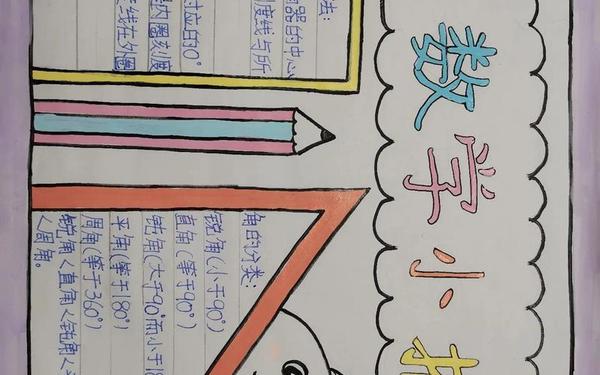 数学小
法:
器的中心
度线与所
对应的0°
内圈刻度
线在外圈
角的分类:
锐角(小于90°)
直角(等于90°)
钝角(大于90°而小于18
平角(等于180°)
周角(等于360°)
锐角<直角<钝角<
<周角。